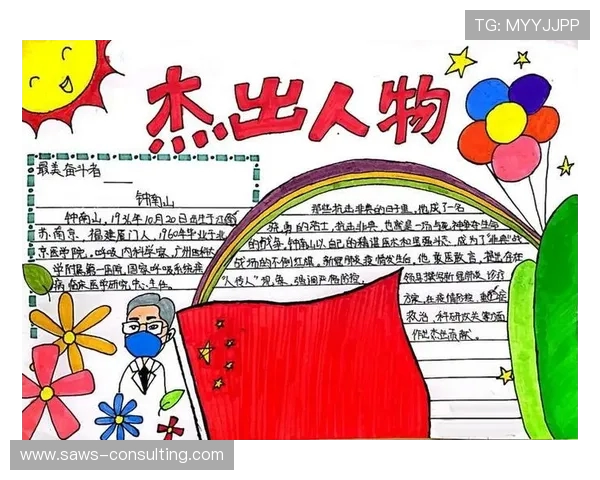 TG: MYYJJPP
杰出人物
最美奋斗者
钟南山
钟南山，1936年10月20日出生于江苏
南京，福建厦门人，1960年毕业于北
京医学院，呼吸内科学家，广州医科大
学附属第一医院，国家呼吸系统疾
病临床医学研究中心主任。
那些抗击非典的日子里，他成了一名
的战士，抗击非典，也就是一场与死神争夺生命
的战争，钟南山以自己的精湛医术和
战场的不倒红旗，新冠肺炎疫情发生后，他
形象，强调严格防控，
领导撰写新冠肺炎诊疗
方案，在疫情防控，重症
救治，科研攻关等方面
作出杰出贡献。
www.saws-consulting.com